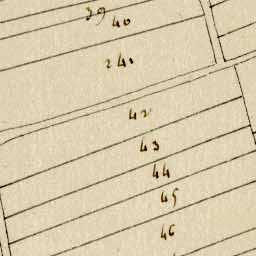 39
40
241
42
43
44
45
46